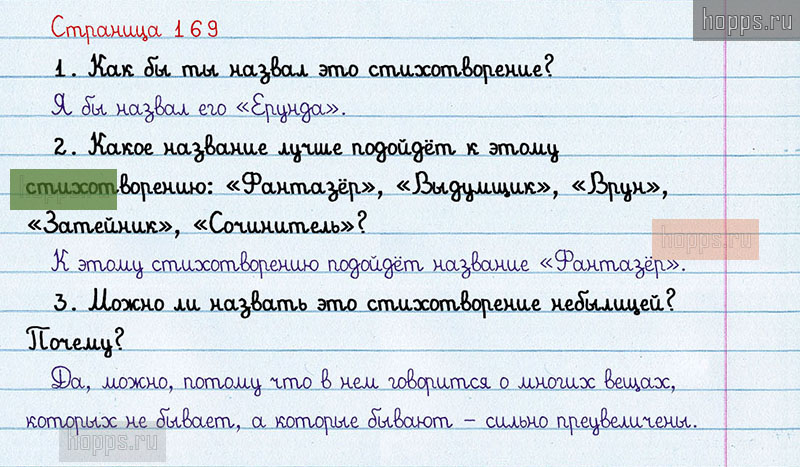 hopps.ru
Страница 169
1. Как бы ты назвал это стихотворение?
Я бы назвал его «Ерунда».
2. Какое название лучше подойдёт к этому
стихотворению: «Фантазёр», «Выдумщик», «Врун»,
hopps.ru
«Затейник», «Сочинитель»?
К этому стихотворению подойдёт название «Фантазёр».
3. Можно ли назвать это стихотворение небылицей?
Почему?
Да, можно, потому что в нем говорится о многих вещах,
которых не бывает, а которые бывают – сильно преувеличены.
hopps.ru